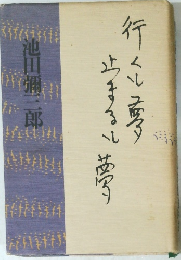 行くも夢
止まるも夢
池田彌三郎